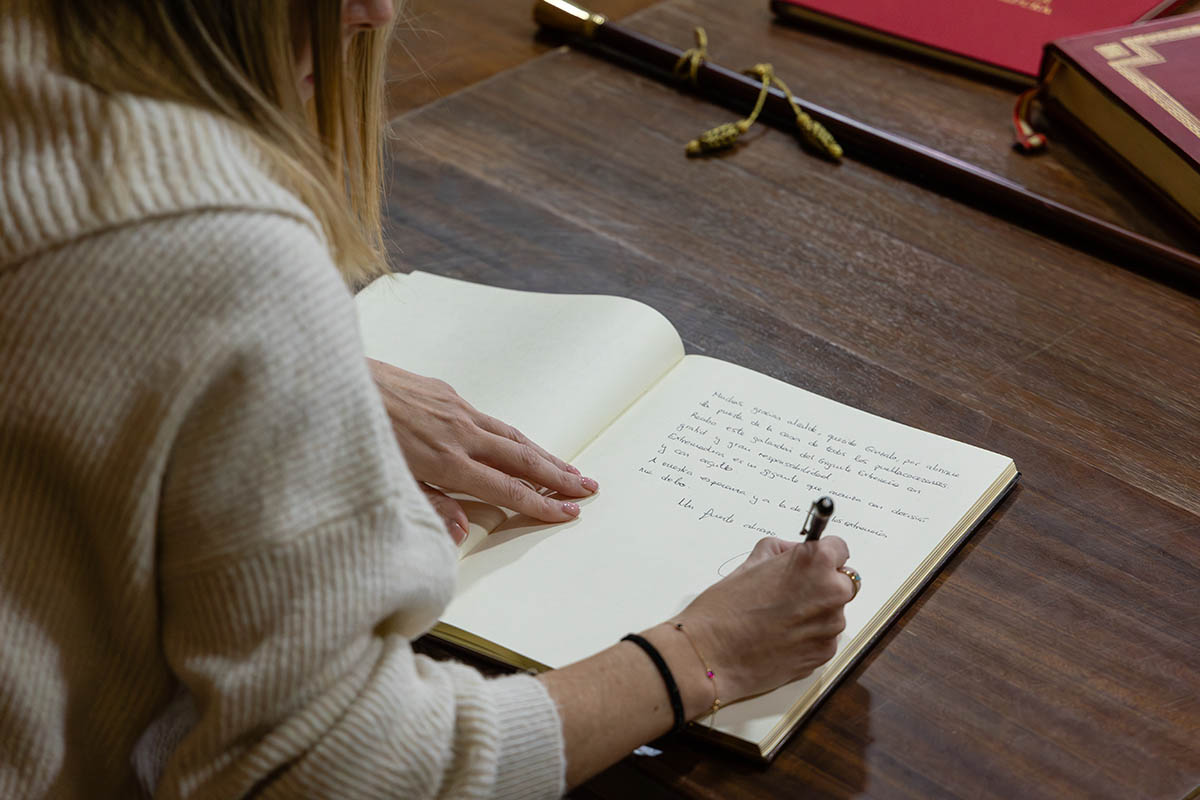 Muchas gracias alcalde, querido Gonzalo, por abrirme
la puerta de la casa de todos los puebla
Recibo este galardón del Gigante Extremeño con
gratitud y gran responsabilidad.
Extremadura es un gigante que avanza con decisión
y con orgullo
A nuestra esperanza y a la de los extremeños
me debo
Un fuerte abrazo